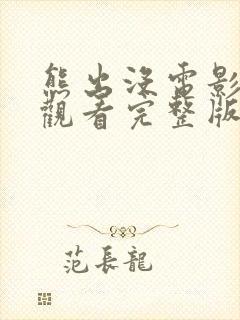 熊出没電影
觀看完整版
范長龍